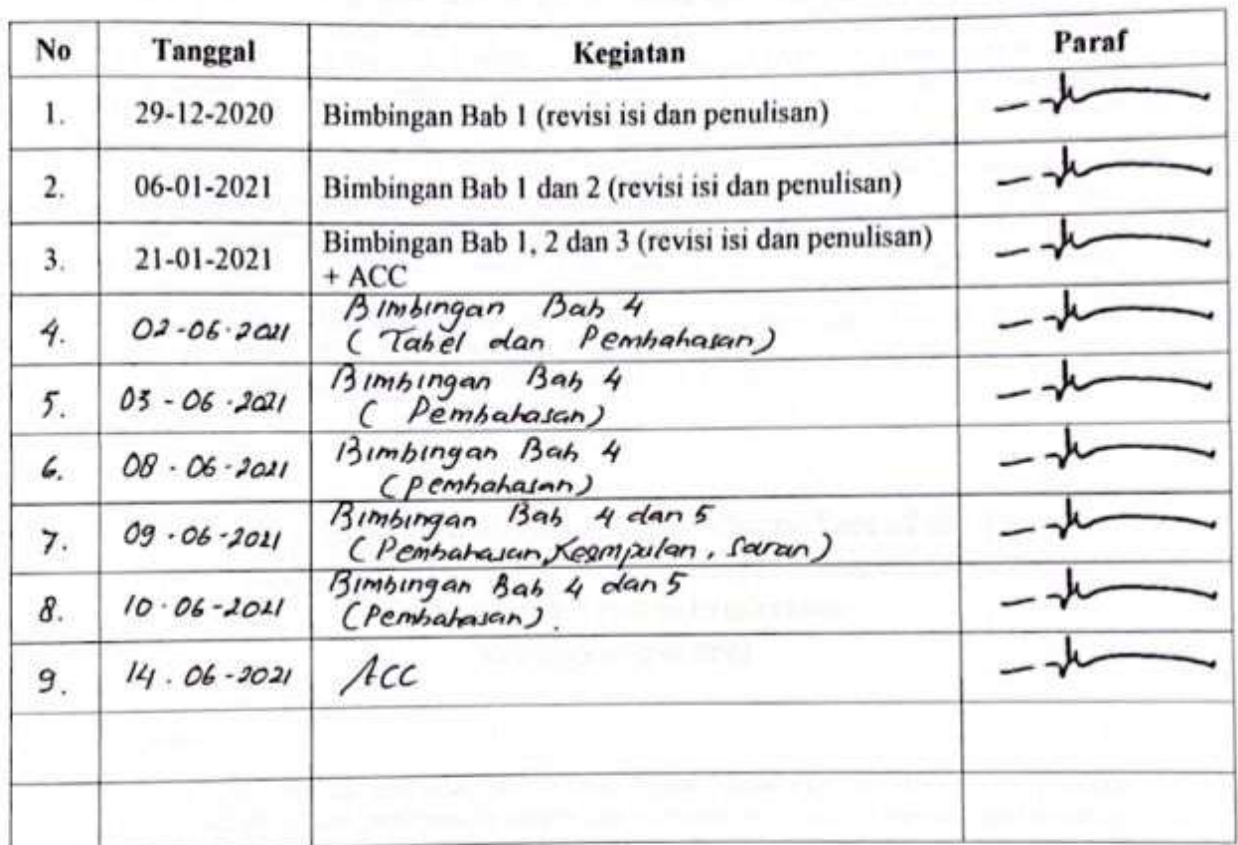 No Tanggal Kegiatan Paraf
1. 29-12-2020 Bimbingan Bab 1 (revisi isi dan penulisan)
2. 06-01-2021 Bimbingan Bab 1 dan 2 (revisi isi dan penulisan)
3. 21-01-2021 Bimbingan Bab 1, 2 dan 3 (revisi isi dan penulisan)
+ ACC
4. 02-06-2021 Bimbingan Bab 4
(Tabel dan Pembahasan)
5. 03-06-2021 Bimbingan Bab 4
(Pembahasan)
6. 08-06-2021 Bimbingan Bab 4
(Pembahasan)
7. 09-06-2021 Bimbingan Bab 4 dan 5
(Pembahasan, Kesimpulan, Saran)
8. 10-06-2021 Bimbingan Bab 4 dan 5
(Pembahasan).
9. 14.06-2021 ACC